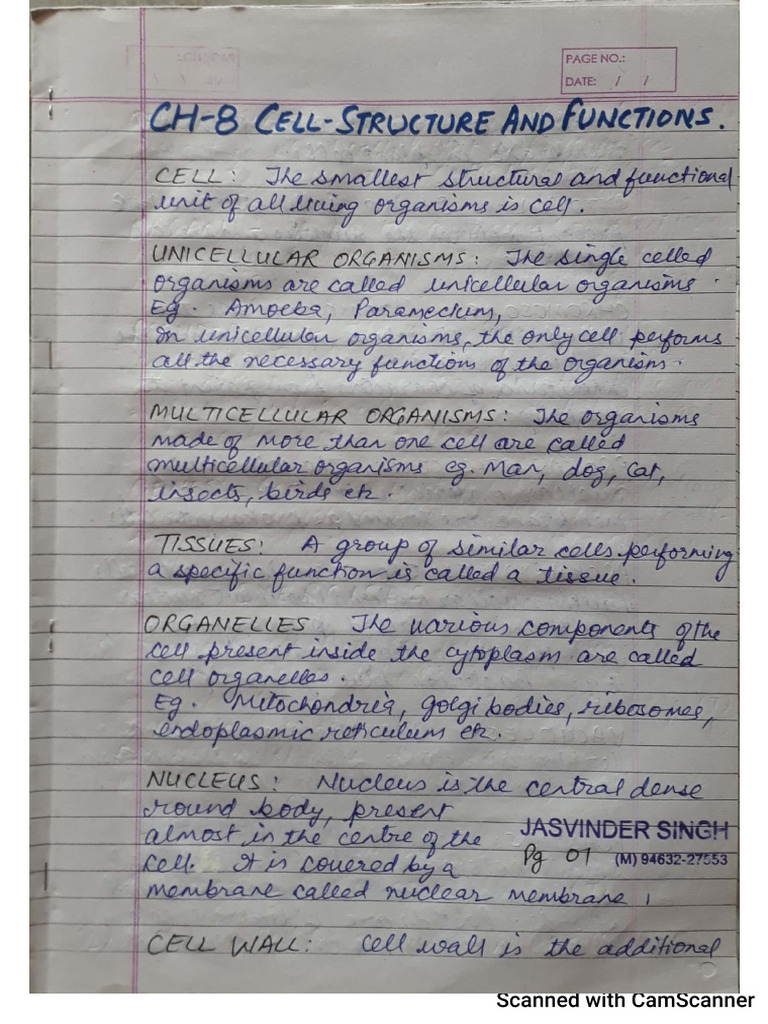 PAGE NO.:
DATE: / /
CH-8 CELL-STRUCTURE AND FUNCTIONS.
CELL: The smallest structural and functional
unit of all living organisms is cell.
UNICELLULAR ORGANISMS: The single celled
organisms are called unicellular organisms.
Eg. Amoeba, Paramecium,
In unicellular organisms, the only cell performs
all the necessary functions of the organism.
MULTICELLULAR ORGANISMS: The organisms
made of more than one cell are called
multicellular organisms eg. Man, dog, Cat,
insects, birds etc.
TISSUES: A group of similar cells performing
a specific function is called a tissue.
ORGANELLES The various components of the
cell present inside the cytoplasm are called
cell organelles.
Eg. Mitochondria, golgi bodies, ribosomes,
endoplasmic reticulum etc.
NUCLEUS: Nucleus is the central dense
round body, present
almost in the centre of the
cell. It is covered by a
membrane called nuclear membrane,
JASVINDER SINGH
Pg 01 (M) 94632-27553
CELL WALL: Cell wall is the additional
Scanned with CamScanner